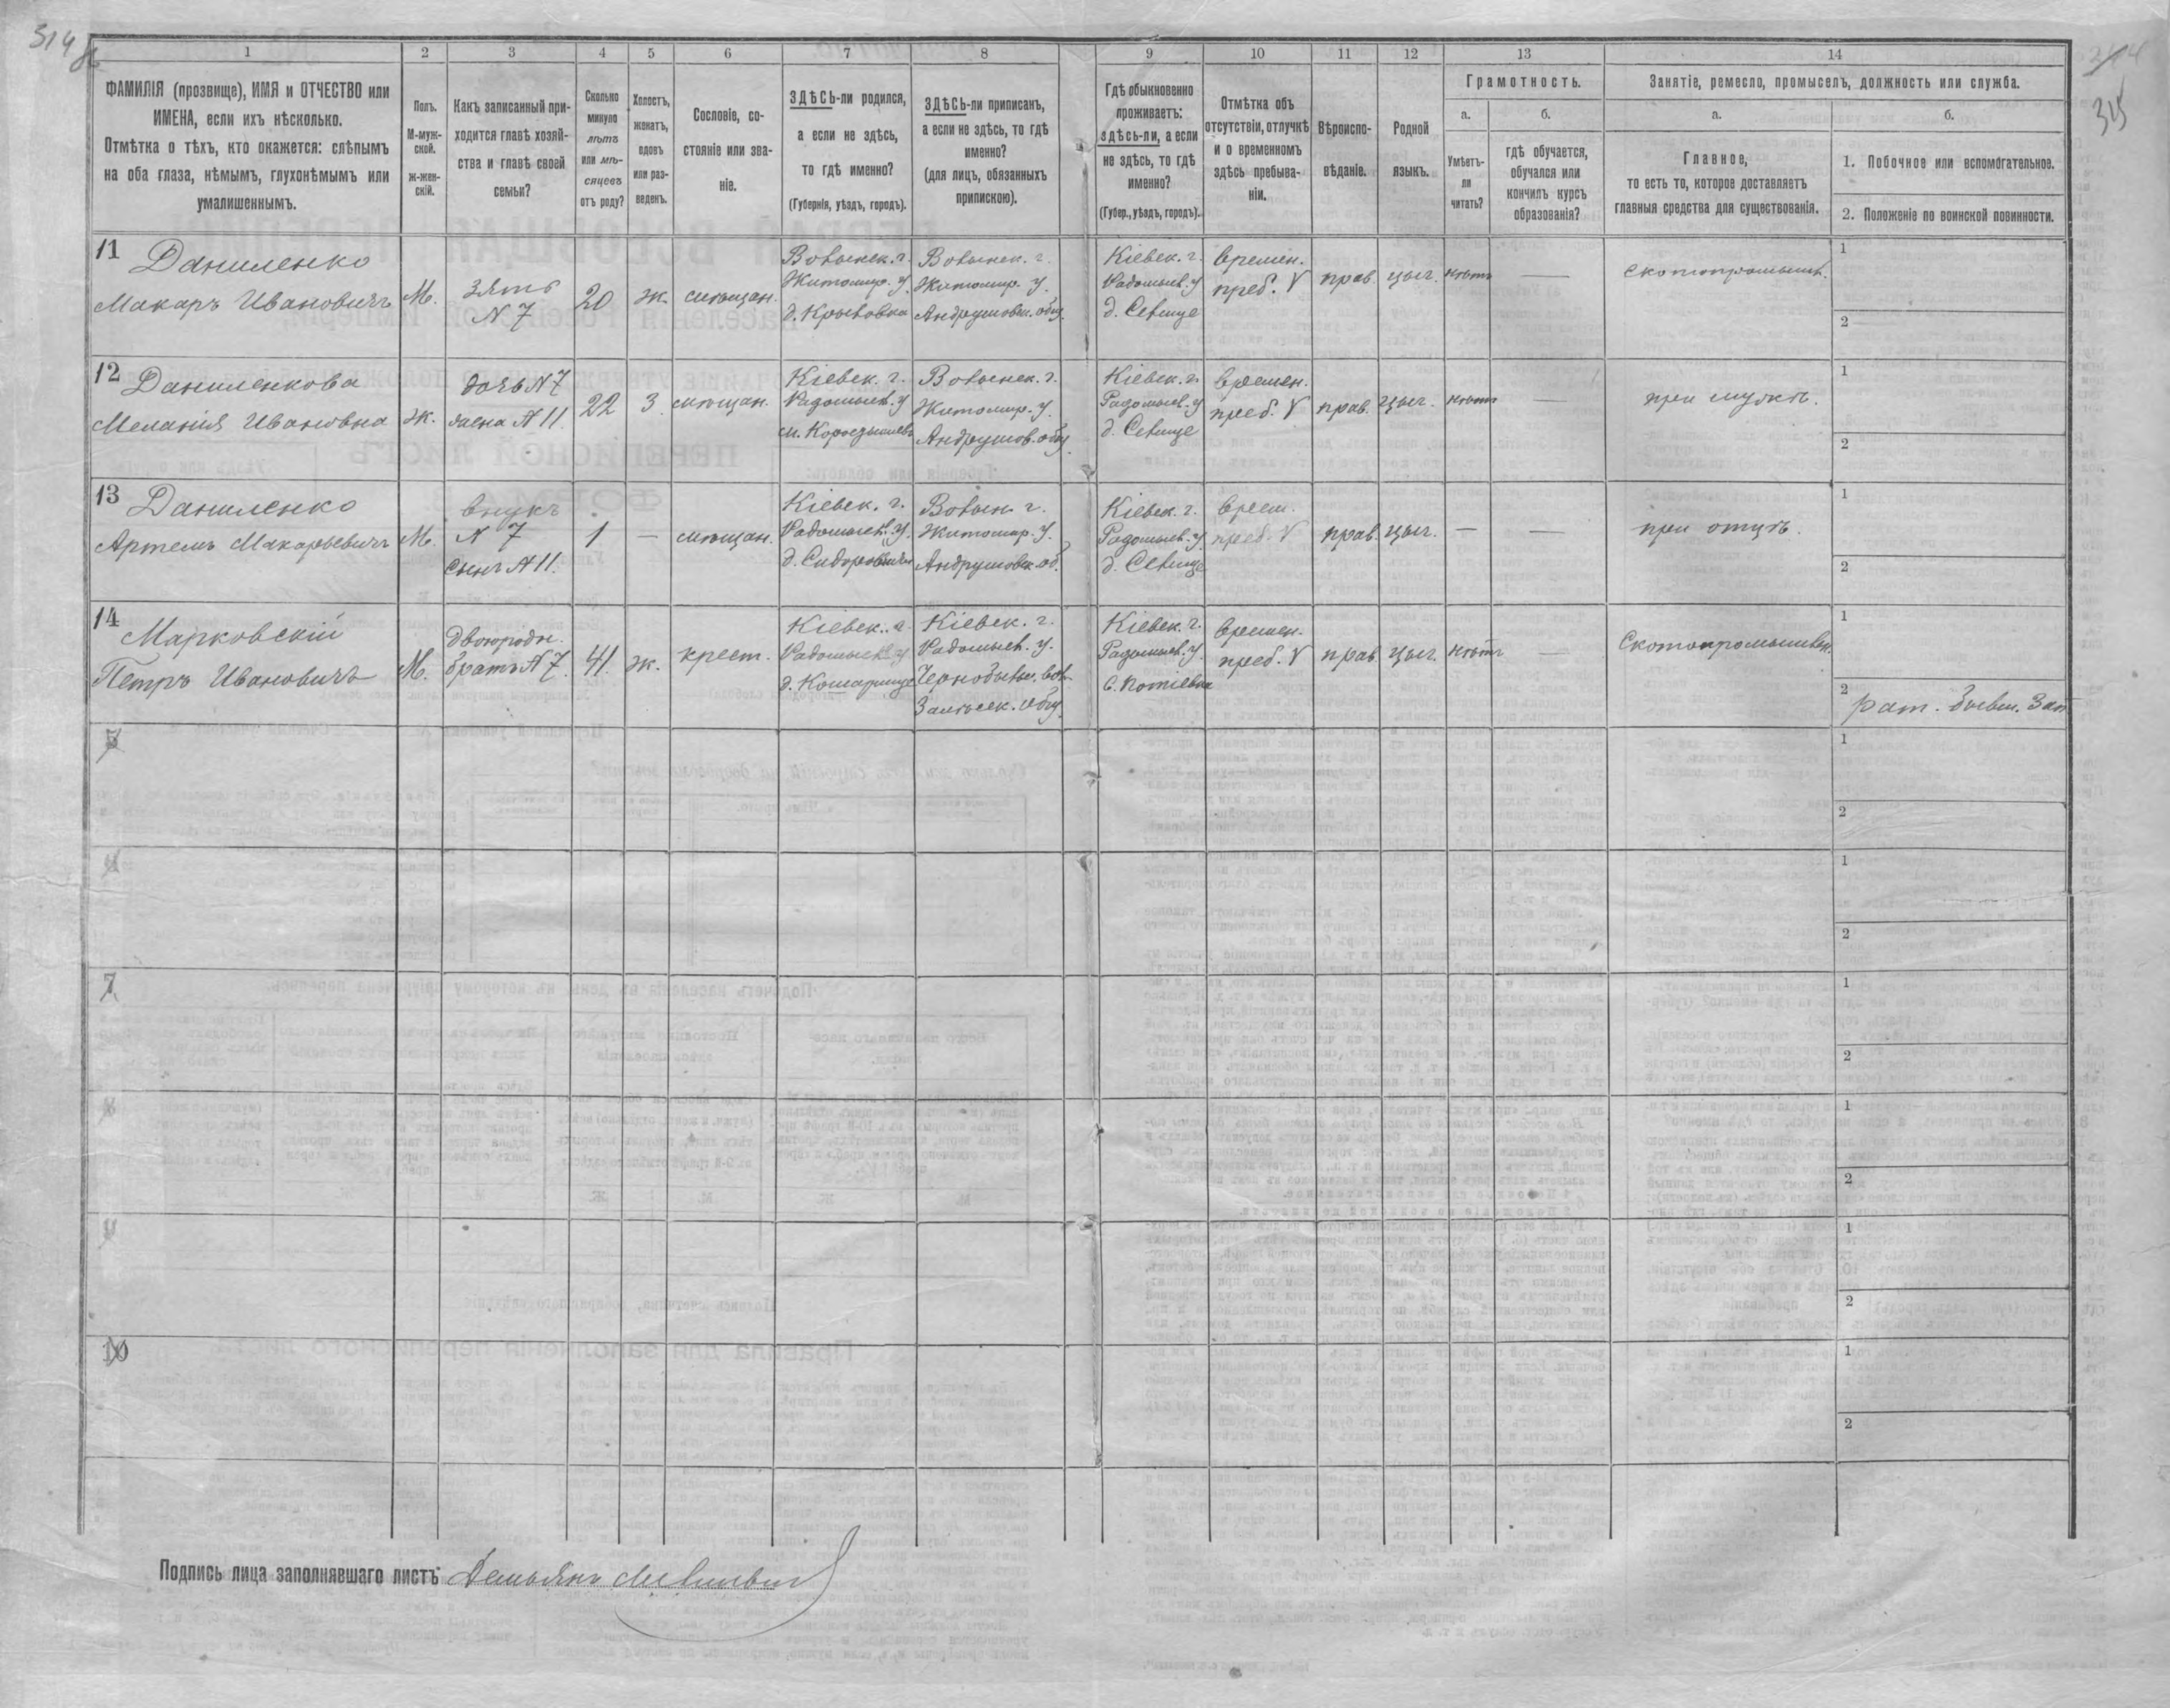 314
1 2 3 4 5 6 7 8 9 10 11 12 13 14
ФАМИЛІЯ (прозвище), ИМЯ и ОТЧЕСТВО или
ИМЕНА, если ихъ нѣсколько.
Отмѣтка о тѣхъ, кто окажется: слѣпымъ
на оба глаза, нѣмымъ, глухонѣмымъ или
умалишеннымъ.
Полъ.
М-муж-
ской.
Ж-жен-
скій.
Какъ записанный при-
ходится главѣ хозяй-
ства и главѣ своей
семьи?
Сколько
минуло
лѣтъ
или мѣ-
сяцевъ
отъ роду?
Холостъ,
женатъ,
вдовъ
или раз-
веденъ.
Сословіе, со-
стояніе или зва-
ніе.
ЗДѢСЬ-ли родился,
а если не здѣсь,
то гдѣ именно?
(Губернія, уѣздъ, городъ).
ЗДѢСЬ-ли приписанъ,
а если не здѣсь, то гдѣ
именно?
(для лицъ, обязанныхъ
припискою).
Гдѣ обыкновенно
проживаетъ:
здѣсь-ли, а если
не здѣсь, то гдѣ
именно?
(Губер., уѣздъ, городъ).
Отмѣтка объ
отсутствіи, отлучкѣ
и о временномъ
здѣсь пребыва-
ніи.
Вѣроиспо-
вѣданіе.
Родной
языкъ.
Грамотность.
а.
Умѣетъ-
ли
читать?
б.
гдѣ обучается,
обучался или
кончилъ курсъ
образованія?
Занятіе, ремесло, промыселъ, должность или служба.
а.
Главное,
то есть то, которое доставляетъ
главныя средства для существованія.
б.
1. Побочное или вспомогательное.
2. Положеніе по воинской повинности.
315
11 Даниленко
Макаръ Ивановичъ
М.
зять
N 7
20
ж.
мѣщан.
Волынск. г.
Житомир. у.
Волынск. г.
Житомир. у.
Андрушовск. общ.
Кіевск. г.
Радомысл. у
д. Слвище
времен.
преб. V
прав.
цыг.
нѣтъ
—
скотопромышл.
1
2
12 Даниленкова
Меланія Ивановна
ж.
дочь N 7
жена N 11.
22
З.
мѣщан.
Кіевск. г.
Радомысл. у
Волынск. г.
Житомир. у.
Андрушов. общ.
Кіевск. г.
Радомысл. у
д. Слвище
времен.
преб. V
прав.
цыг.
нѣтъ
—
при мужѣ.
1
2
13 Даниленко
Артемъ Макарьевичъ
М.
внукъ
N 7
сынъ N 11.
1
—
мѣщан.
Кіевск. г.
Радомысл. у.
Волын. г.
Житомир. у.
Андрушовск. об.
Кіевск. г.
Радомысл. у.
д. Слвище
врем.
преб. V
прав.
цыг.
—
—
при отцѣ.
1
2
14
Марковскій
Петръ Ивановичъ
М.
двоюродн.
братъ N 7.
41.
ж.
крест.
Кіевск. г.
Радомысл. у
д. Кошарище
Кіевск. г.
Радомысл. у.
Чернобыл. вол.
Залѣсск. общ.
Кіевск. г.
Радомысл. у.
с. Потіевка
времен.
преб. V
прав.
цыг.
нѣтъ
—
Скотопромышлен.
1
2
рат.
5
1
2
6
1
2
7
1
2
8
1
2
9
1
2
10
1
2
Подпись лица заполнявшаго листъ: Демьянъ